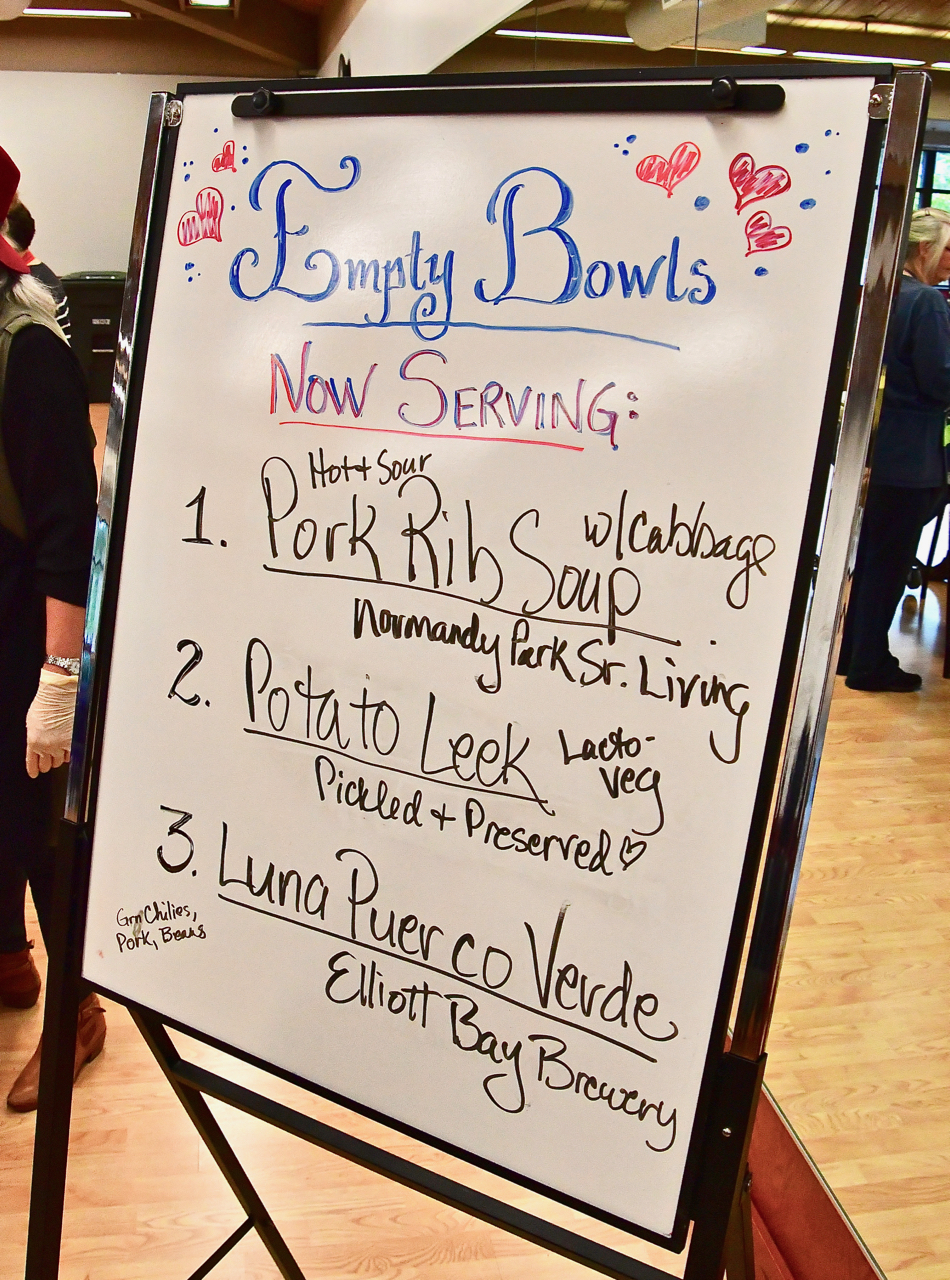 Empty Bowls
Now Serving:
Hot + Sour
1. Pork Rib Soup w/cabbage
Normandy Park Sr. Living
2. Potato Leek Lacto-
veg
Pickled + Preserved ♡
3. Luna Puerco Verde
Grn Chilies,
Pork, Beans
Elliott Bay Brewery